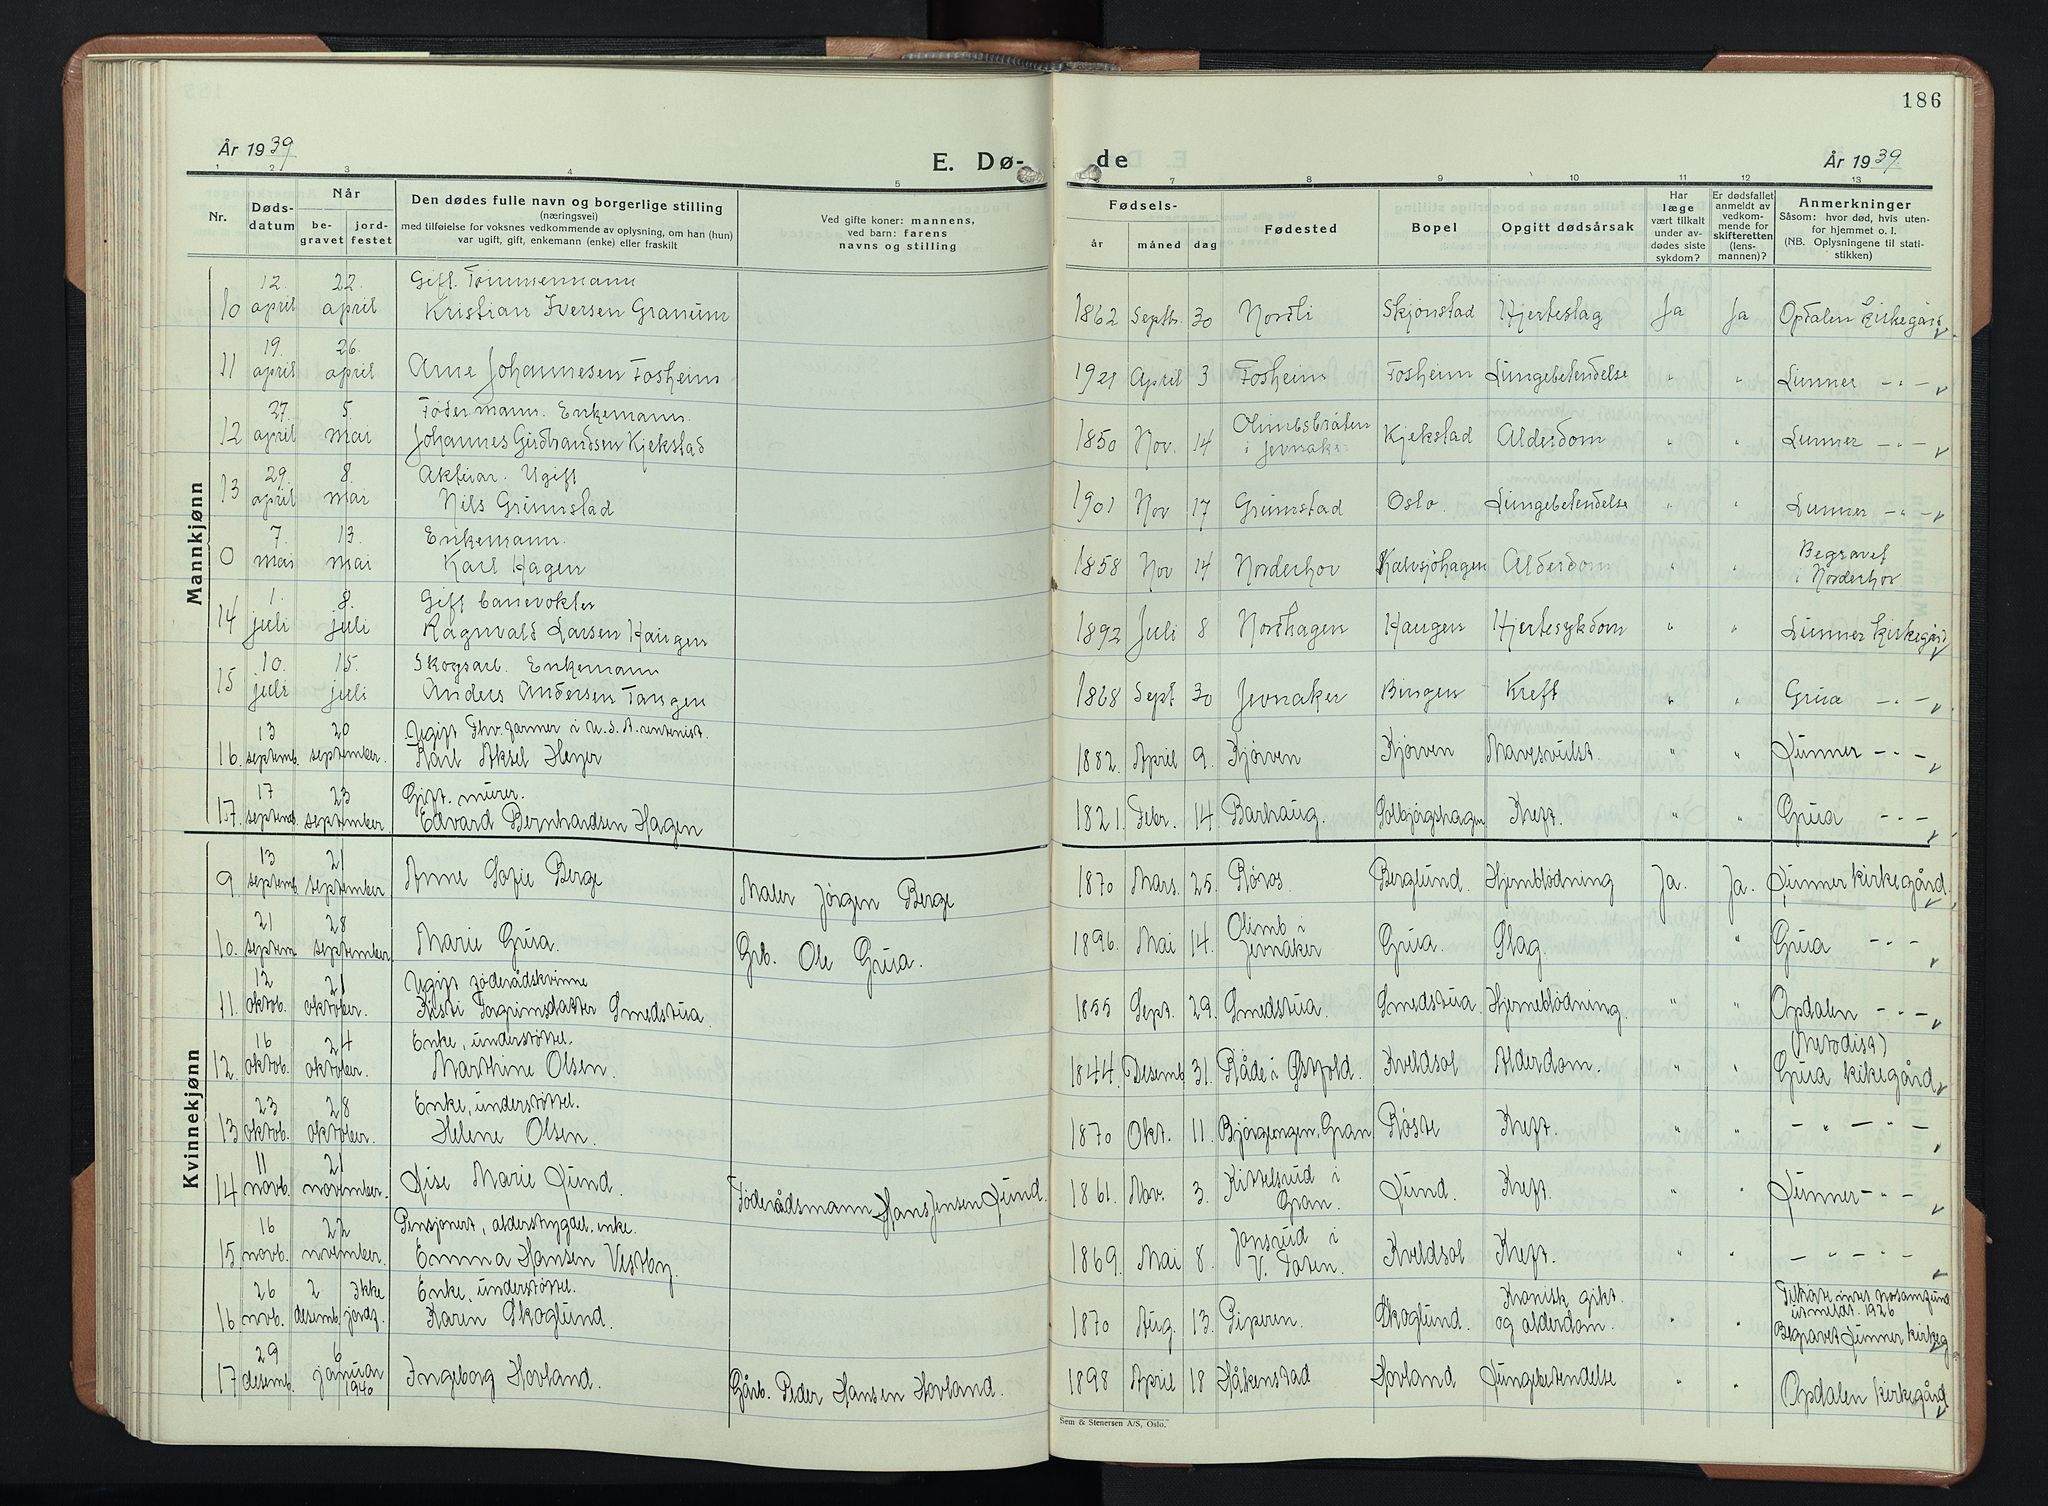 186
År 1939
E. Dø-
de
År 1939.
1 2 3 4 5 7 8 9 10 11 12 13
Nr.
Døds-
datum
Når
be-
gravet
jord-
festet
Den dødes fulle navn og borgerlige stilling
(næringsvei)
med tilføielse for voksnes vedkommende av oplysning, om han (hun)
var ugift, gift, enkemann (enke) eller fraskilt
Ved gifte koner: mannens,
ved barn: farens
navns og stilling
Fødsels-
år
måned
dag
Fødested
Bopel
Opgitt dødsårsak
Har
læge
vært tilkalt
under av-
dødes siste
sykdom?
Er dødsfallet
anmeldt av
vedkom-
mende for
skifteretten
(lens-
mannen)?
Anmerkninger
Såsom: hvor død, hvis uten-
for hjemmet o. l.
(NB. Oplysningene til stati-
stikken)
Mannkjønn
12. 22. Gift. Tømmermann
10 april april Kristian Iversen Granum 1862 Septb. 30 Nordli Skjønstad Hjerteslag Ja Ja Opdalen kirkegård
19. 26.
11 april april Arne Johannesen Fosheim 1921 April 3 Fosheim Fosheim Lungebetendelse " " Lunner - " -
27. 5. Fødermann. Enkemann.
12 april mai Johannes Gudbrandsen Kjekstad 1850 Nov. 14 Olimbsbråten i Jevnaker Kjekstad Alderdom " " Lunner - " -
29. 8. Ugift
13 april mai Nils Grimstad 1901 Nov 17 Grimstad Oslo. Lungebetendelse " " Lunner - " -
7. 13. Enkemann.
0 mai mai Karl Hagen 1858 Nov 14 Norderhov Kalvsjøhagen Alderdom " " Begravet i Norderhov
1. 8. Gift banevokter
14 juli juli Ragnvald Larsen Haugen 1892 Juli 8 Nordhagen Haugen Hjertesykdom " " Lunner kirkegård
10. 15. Skogsarb. Enkemann
15 juli juli Anders Andersen Tangen 1868 Sept 30 Jevnaker Bingen Kreft " " Grua - " -
13 20 Ugift Fhv. farmer i U.S.A. rentenist.
16. septemb. september. Karl Aksel Heyer 1882. April 9. Kjørven Kjørven Mavesvulst. " " Lunner - " -
17 23 Gift. murer.
17. septemb. september. Edvard Bernhardsen Hagen 1821. Febr. 14. Barhaug. Solbjørgshagen Kreft. " " Grua - " -
Kvinnekjønn
13 21
9. septemb. september Anne Sofie Berge Maler Jørgen Berge 1870 Mars. 25. Røros. Berglund. Hjernblødning Ja. Ja. Lunner kirkegård
21 28
10. septem. september Marie Grua. Grb. Ole Grua. 1896. Mai 14. Olimb i Jevnaker Grua. Slag. " Grua - " -
12 21 Ugift føderådskvinne
11. oktob. oktober. Kisti Torgrimsdatter Smedstua. 1855 Sept. 29. Smedstua. Smedstua Hjerneblødning. " " Opdalen - " -
16 24 Enke, understøttet. (Metodist)
12. oktob. oktober. Marthine Olsen. 1844. Desemb. 31. Råde i Østfold. Kveldsol Alderdom. " " Grua kikegård
23 28 Enke, understøttet.
13 oktob. oktober. Helene Olsen. 1870 Okt. 11. Bjørgeengen, Gran Røste Kreft. " " - " - " -
11 21
14 novb. november. Lise Marie Lund. Føderådsmann Hans Jensen Lund. 1861. Nov. 3. Kittelsrud i Gran. Lund. Kreft. " " Lunner - " -
16 22 Pensjonert, alderstrygdet. enke.
15 novb. november. Emma Hansen Vestby. 1869. Mai 8. Jonsrud i V. Toten. Kveldsol Kreft. " " - " - " -
26 2 Ikke Enke, understøttet.
16 nvb. desemb. jordf. Karen Skoglund. 1870 Aug. 13. Piperen. Skoglund. Kronisk gikt. og alderdom. " "
utmeldt. 1926
Begravet Lunner kirkeg
29 6
17 desemb. januar 1940 Ingeborg Hovland. Gårb. Peder Hansen Hovland. 1898 April 18 Håkenstad Hovland Lungebetendelse " " Opdalen kirkegård
Sem & Stenersen A/S, Oslo.